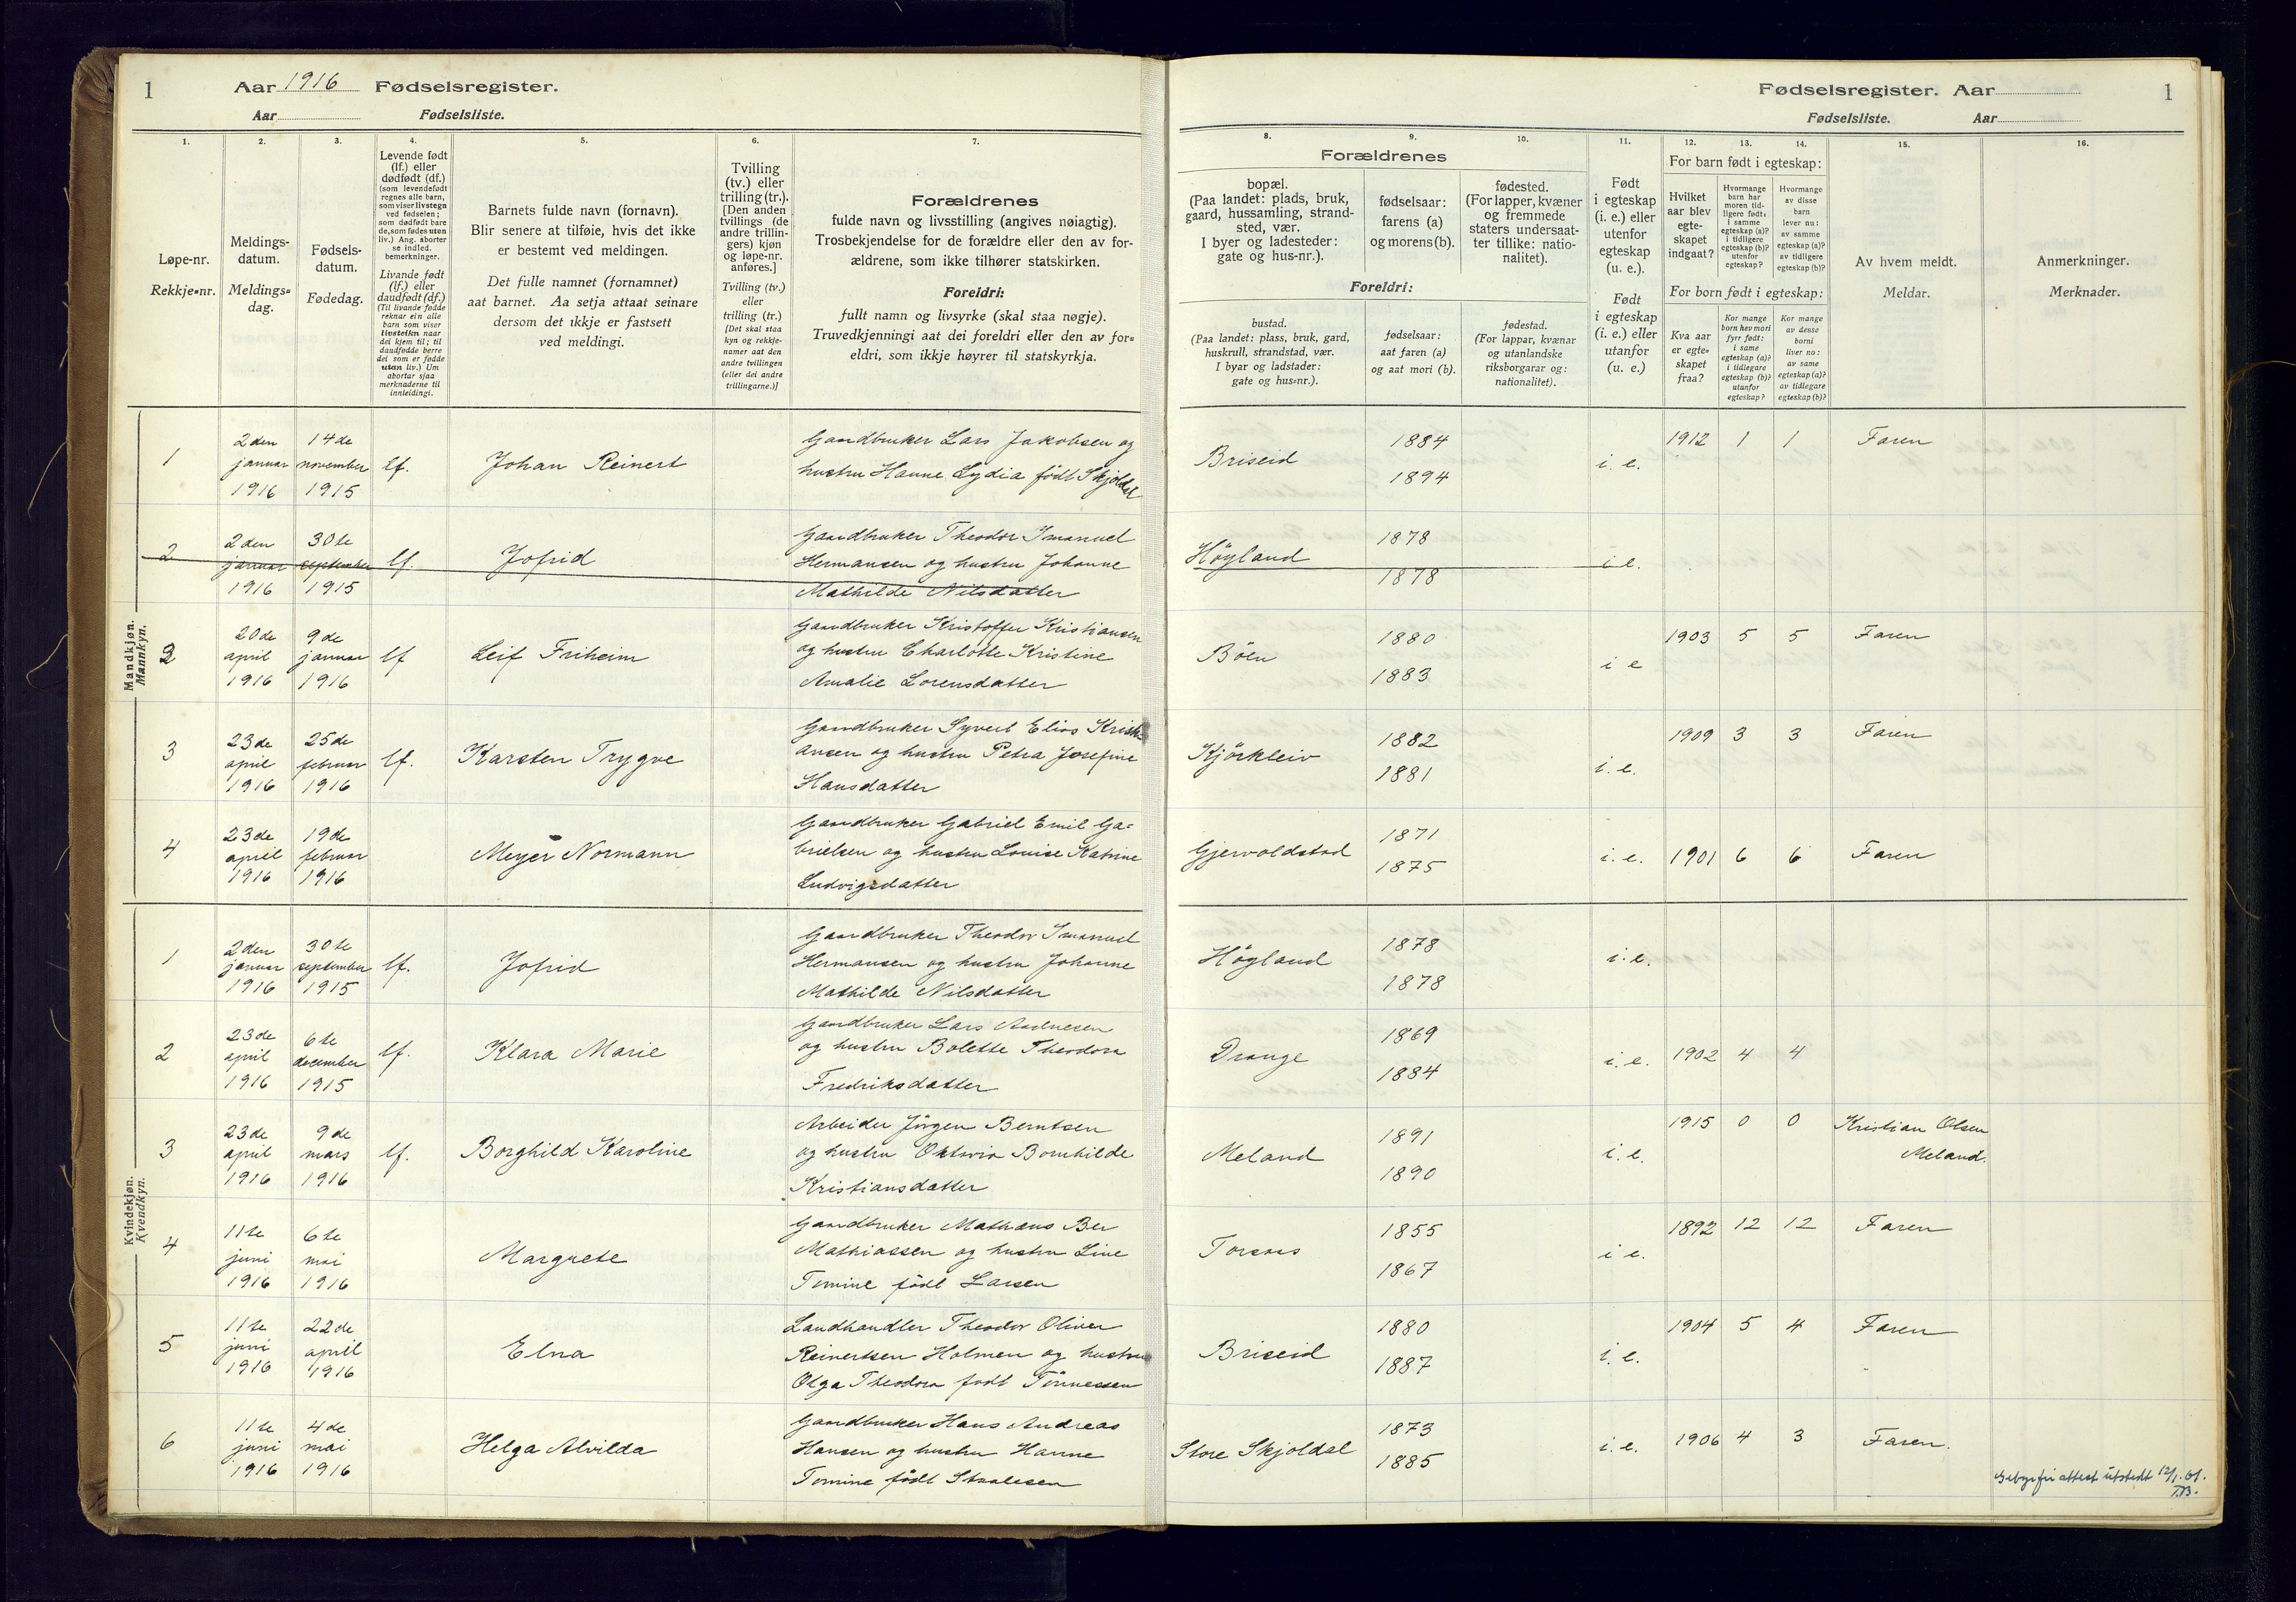 1
Aar 1916 Fødselsregister.
Aar Fødselsliste.
Fødselsregister. Aar
1
Fødselsliste. Aar
1. 2. 3. 4. 5. 6. 7. 8. 9. 10. 11. 12. 13. 14. 15. 16.
Løpe-nr.
Rekkje-nr.
Meldings-
datum.
Meldings-
dag.
Fødsels-
datum.
Fødedag.
Levende født
(lf.) eller
dødfødt (df.)
(som levendefødt
regnes alle barn,
som viser livstegn
ved fødselen;
som dødfødt bare
de, som fødes uten
liv.) Ang. aborter
se indled.
bemerkninger.
Livande født
(lf.) eller
daudfødt (df.)
(Til livande fødde
reknar ein alle
barn som viser
livsteikn naar
dei kjem til; til
daudfødde berre
dei som er fødde
utan liv.) Um
abortar sjaa
merknaderne til
innleidingi.
Barnets fulde navn (fornavn).
Blir senere at tilføie, hvis det ikke
er bestemt ved meldingen.
Det fulle namnet (fornamnet)
aat barnet. Aa setja attaat seinare
dersom det ikkje er fastsett
ved meldingi.
Tvilling
(tv.) eller
trilling (tr.).
[Den anden
tvillings (de
andre trillin-
gers) kjøn
og løpe-nr.
anføres.]
Tvilling (tv.)
eller
trilling (tr.)
[Det skal staa
kyn og rekkje-
numer aat den
andre tvillingen
(eller dei andre
trillingarne.)]
Forældrenes
fulde navn og livsstilling (angives nøiagtig).
Trosbekjendelse for de forældre eller den av for-
ældrene, som ikke tilhører statskirken.
Foreldri:
fullt namn og livsyrke (skal staa nøgje).
Truvedkjenningi aat dei foreldri eller den av for-
eldri, som ikkje høyrer til statskyrkja.
Forældrenes
bopæl.
(Paa landet: plads, bruk,
gaard, hussamling, strand-
sted, vær.
I byer og ladesteder:
gate og hus-nr.).
fødselsaar:
farens (a)
og morens (b).
fødested.
(For lapper, kvæner
og fremmede
staters undersaat-
ter tillike: natio-
nalitet).
Foreldri:
bustad.
(Paa landet: plass, bruk, gard,
huskrull, strandstad, vær.
I byar og ladstader:
gate og hus-nr.).
fødselsaar:
aat faren (a)
og aat mori (b).
fødestad.
(For lappar, kvænar
og utanlandske
riksborgarar og:
nationalitet).
Født
i egteskap
(i. e.) eller
utenfor
egteskap
(u. e.).
Født
i egteskap
(i. e.) eller
utanfor
(u. e.)
For barn født i egteskap:
Hvilket
aar blev
egte-
skapet
indgaat?
Hvormange
barn har
moren tid-
ligere født:
i samme
egteskap (a)?
i tidligere
egteskap (b)?
utenfor
egteskap?
Hvormange
av disse
barn
lever nu:
av samme
egteskap (a)?
av tidligere
egteskap (b)?
For born født i egteskap:
Kva aar
er egte-
skapet
fraa?
Kor mange
born hev mori
fyrr født:
i same
egteskap (a)?
i tidlegare
egteskap (b)?
utanfor
egteskap?
Kor mange
av desse
borni
liver no:
av same
egteskap (a)?
av tidlegare
egteskap (b)?
Av hvem meldt.
Meldar.
Anmerkninger.
Merknader.
Mandkjøn.
Mannkyn.
1 2den januar 1916 14de november 1915 lf. Johan Reinert
Gaardbruker Lars Jakobsen og
hustru Hanne Lydia født Skjoldal
Briseid 1884 1894 i. e. 1912 1 1 Faren
2 2den januar 1916 30te september 1915 lf. Jofrid
Gaardbruker Theodor Imanuel
Hermansen og hustru Johanne
Mathilde Nilsdatter
Höyland 1878 1878 i e.
2 20de april 1916 9de januar 1916 lf Leif Friheim
Gaardbruker Kristoffer Kristiansen
og hustru Charlotte Kristine
Amalie Lorensdatter
Böen 1880 1883 i e 1903 5 5 Faren
3 23de april 1916 25de februar 1916 lf. Karsten Trygve
Gaardbruker Syvert Elias Kristi-
ansen og hustru Petra Josefine
Hansdatter
Kjörkleiv 1882 1881 i. e. 1909 3 3 Faren
4 23de april 1916 19de februar 1916 Meyer Normann
Gaardbruker Gabriel Emil Ga-
brielsen og hustru Louise Katrine
Ludvigsdatter
Gjervoldstad 1871 1875 i. e. 1901 6 6 Faren
Kvindekjøn.
Kvendkyn.
1 2den januar 1916 30te september 1915 lf. Jofrid
Gaardbruker Theodor Imanuel
Hermansen og hustru Johanne
Mathilde Nilsdatter
Höyland 1878 1878 i. e.
2 23de april 1916 6te december 1915 lf. Klara Marie
Gaardbruker Lars
og hustru Bolette Theodora
Fredriksdatter
Drange 1869 1884 i. e. 1902 4 4
3 23de april 1916 9de mars 1916 lf. Borghild Karoline
Arbeider Jörgen Berntsen
og hustru Oktavia Bornhilde
Kristiansdatter
Meland 1891 1890 i. e. 1915 0 0 Kristian Olsen
Meland.
4 11te juni 1916 6te mai 1916 Margrete
Gaardbruker Mathæus Ber
Mathiassen og hustru Line
Tomine født Larsen
1855 1867 i e. 1892 12 12 Faren
5 11te juni 1916 22de april 1916 Elna
Landhandler Theodor Oliver
Reinertsen Holmen og hustru
Olga Theodora født Tönnessen
Briseid 1880 1887 i. e. 1904 5 4 Faren
6 11te juni 1916 4de mai 1916 Helga Alvilda
Gaardbruker Hans Andreas
Hansen og hustru Hanne
Tomine født Staalesen
Store Skjoldal 1873 1885 i. e. 1906 4 3 Faren.
Gebyrfri attest utstedt 12/1.61.